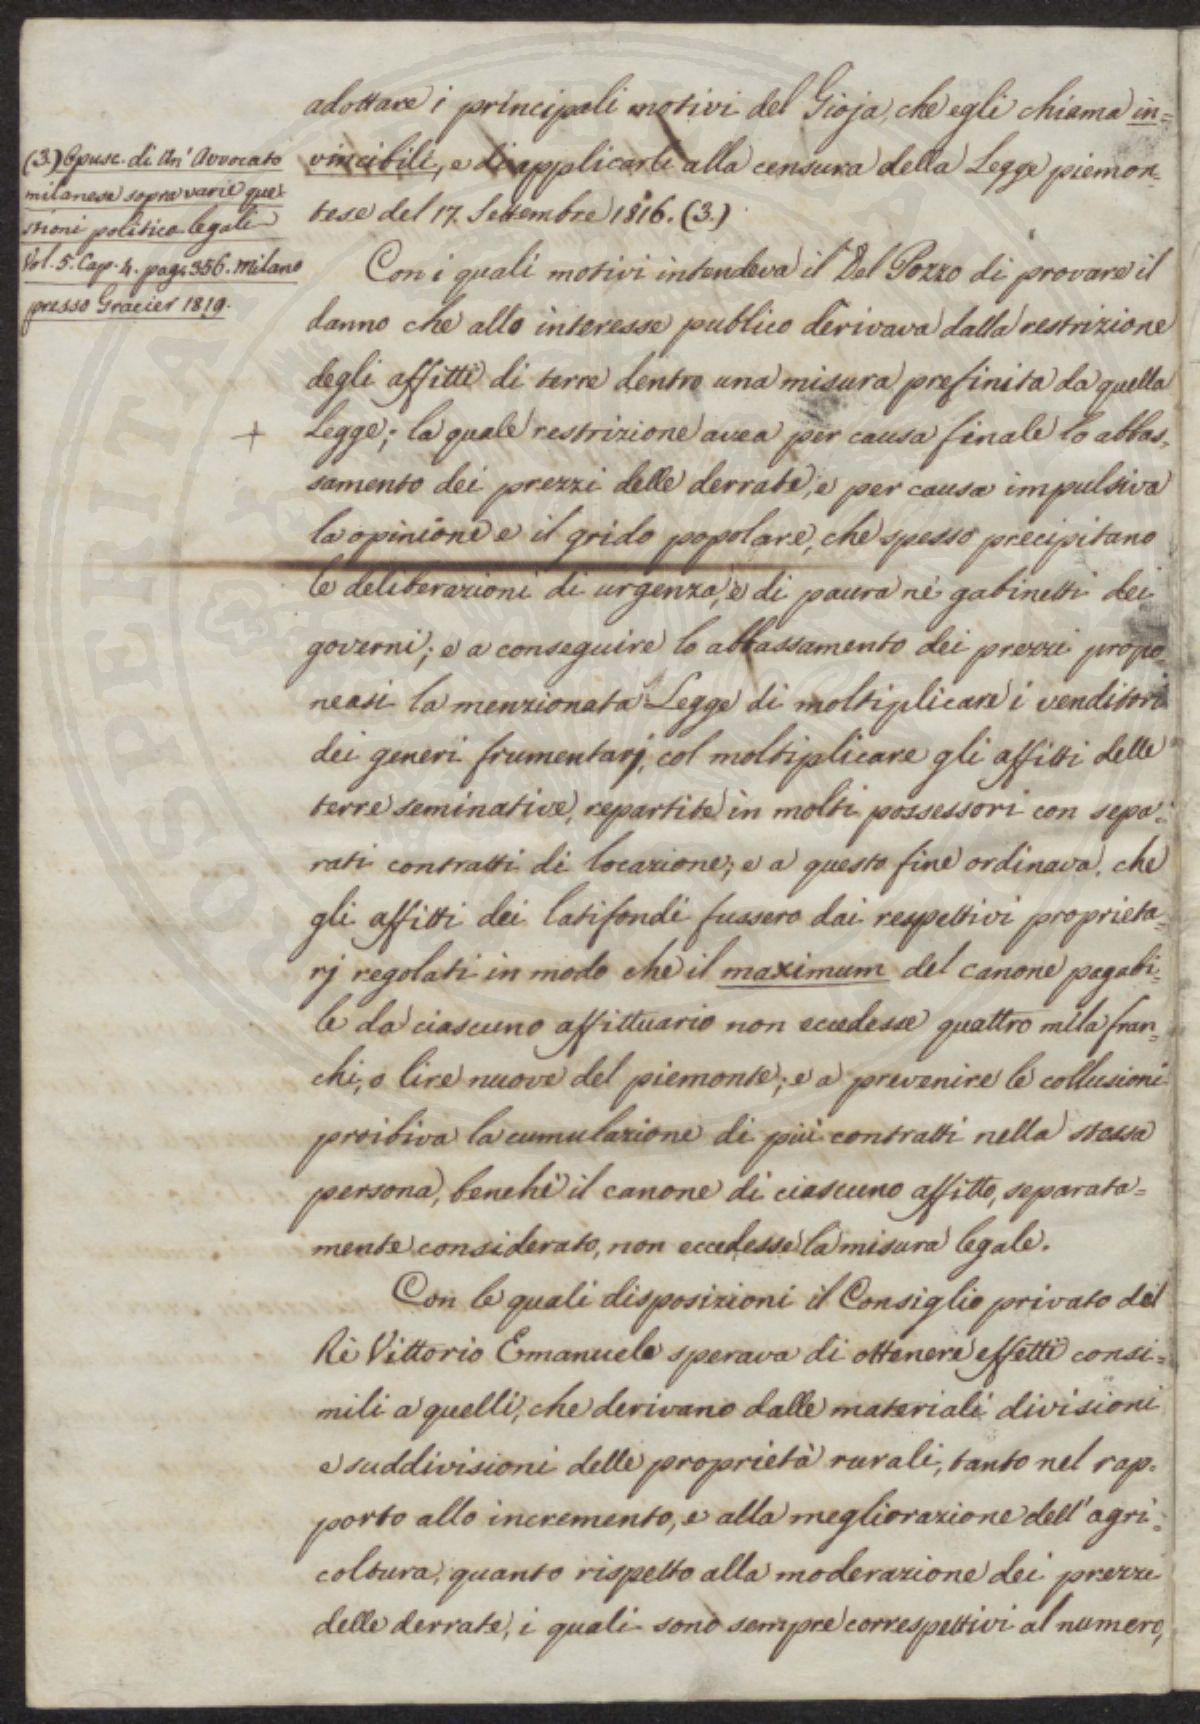 adottare i principali motivi del Gioja, che egli chiama in=
vincibili, e di applicarli alla censura della Legge piemon-
tese del 17. Settembre 1816. (3.)
(3.) Opusc. di Un' Avvocato
milanese sopra varie que-
stioni politico legali
Vol. 5. Cap. 4. pag. 356. Milano
presso Gracier 1819.
Con i quali motivi intendeva il Del Pozzo di provare il
danno che allo interesse publico derivava dalla restrizione
degli affitti di terre dentro una misura prefinita da quella
+ Legge; la quale restrizione avea per causa finale lo abbas=
samento dei prezzi delle derrate, e per causa impulsiva
la opinione e il grido popolare, che spesso precipitano
le deliberazioni di urgenza, e di paura ne' gabinetti dei
governi; e a conseguire lo abbassamento dei prezzi propo-
neasi la menzionata Legge di moltiplicare i venditori
dei generi frumentarj, col moltiplicare gli affitti delle
terre seminative, repartite in molti possessori con sepa-
rati contratti di locazione; e a questo fine ordinava, che
gli affitti dei latifondi fussero dai respettivi proprieta-
rj regolati in modo che il maximum del canone pagabi-
le da ciascuno affittuario non eccedesse quattro mila fran-
chi, o lire nuove del piemonte; e a prevenire le collusioni
proibiva la cumulazione di più contratti nella stessa
persona, benchè il canone di ciascuno affitto, separata=
mente considerato, non eccedesse la misura legale.
Con le quali disposizioni il Consiglio privato del
Rè Vittorio Emanuele sperava di ottenere effetti consi=
mili a quelli, che derivano dalle materiali divisioni
e suddivisioni delle proprietà rurali, tanto nel rap-
porto allo incremento, e alla megliorazione dell' agri-
coltura, quanto rispetto alla moderazione dei prezzi
delle derrate, i quali sono sempre correspettivi al numero,